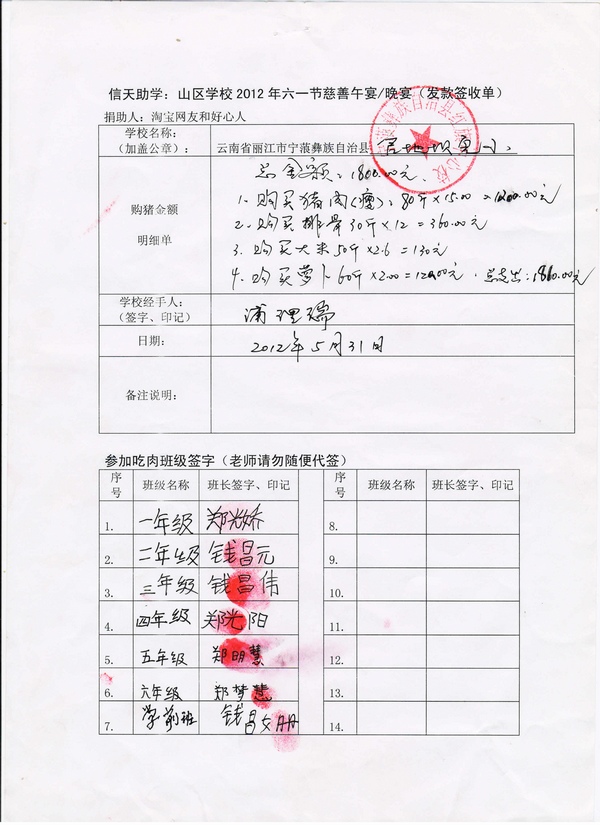 信天助学：山区学校2012年六一节慈善午宴/晚宴（发款签收单）
捐助人：淘宝网友和好心人
学校名称：
（加盖公章）：
云南省丽江市宁蒗彝族自治县
购猪金额
明细单
总金额：1800.00元.
1. 购买猪肉(瘦)：80斤×15.00=1200.00元
2. 购买排骨30斤×12=360.00元
3. 购买大米50斤×2.6=130元
4. 购买萝卜60斤×2.00=120.00元．总支出：1810.00元
学校经手人：
（签字、印记）
浦理瑞
日期：
2012年5月31日
备注说明：
参加吃肉班级签字（老师请勿随便代签）
序号 班级名称 班长签字、印记 序号 班级名称 班长签字、印记
1. 一年级 郑光娇 8.
2. 二年级 钱昌元 9.
3. 三年级 钱昌伟 10.
4. 四年级 郑光阳 11.
5. 五年级 郑明慧 12.
6. 六年级 郑梦慧 13.
7. 学前班 钱昌文册 14.